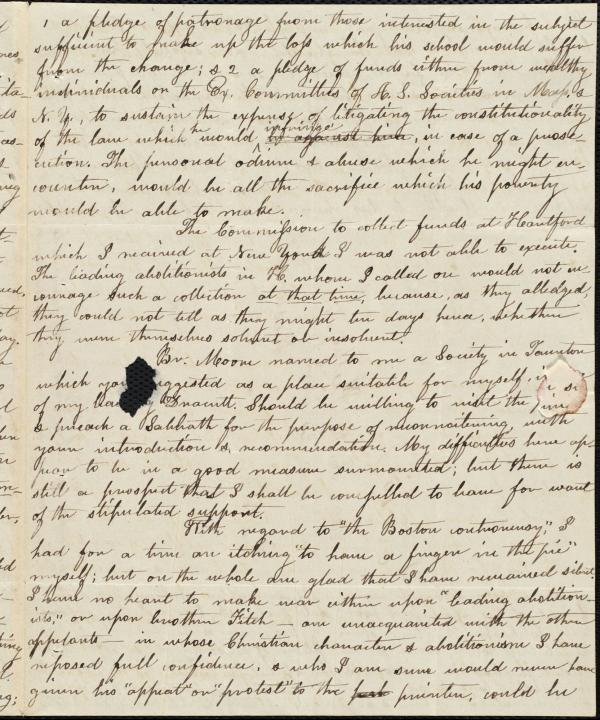 1 a pledge of patronage from those interested in the subject
sufficient to make up the loss which his school would suffer
from the change; & 2 a pledge of funds either from wealthy
individuals or the Ex. Committees of A. S. Societies in Mass. &
N. Y., to sustain the expense of litigating the constitutionality
of the law which he would infringe, in case of a prose-
cution. The personal odium & abuse which he might en-
counter, would be all the sacrifice which his poverty
would be able to make.
The Commission to collect funds at Hartford
which I received at New York I was not able to execute.
The leading abolitionists in H. whom I called on would not en-
courage such a collection at that time, because, as they alledged,
they could not tell as they might ten days hence, whether
they were themselves solvent or insolvent.
Br. Moore named to me a Society in Taunton
which you suggested as a place suitable for myself, in
of my leaving Dracutt. Should be willing to visit the
& preach a Sabbath for the purpose of reconnoitering, with
your introduction & recommendation. My difficulties here ap-
pear to be in a good measure surmounted; but there is
still a prospect that I shall be compelled to leave for want
of the stipulated support.
With regard to "the Boston controversy," I
had for a time an itching "to have a finger in the pie"
myself; but on the whole am glad that I have remained silent.
I have no heart to make war either upon "leading abolition-
ists," or upon brother Fitch — am unacquainted with the other
appelants — in whose Christian character & abolitionism I have
reposed full confidence, & who I am sure would never have
given his "appeal" or "protest" to the printer, could he